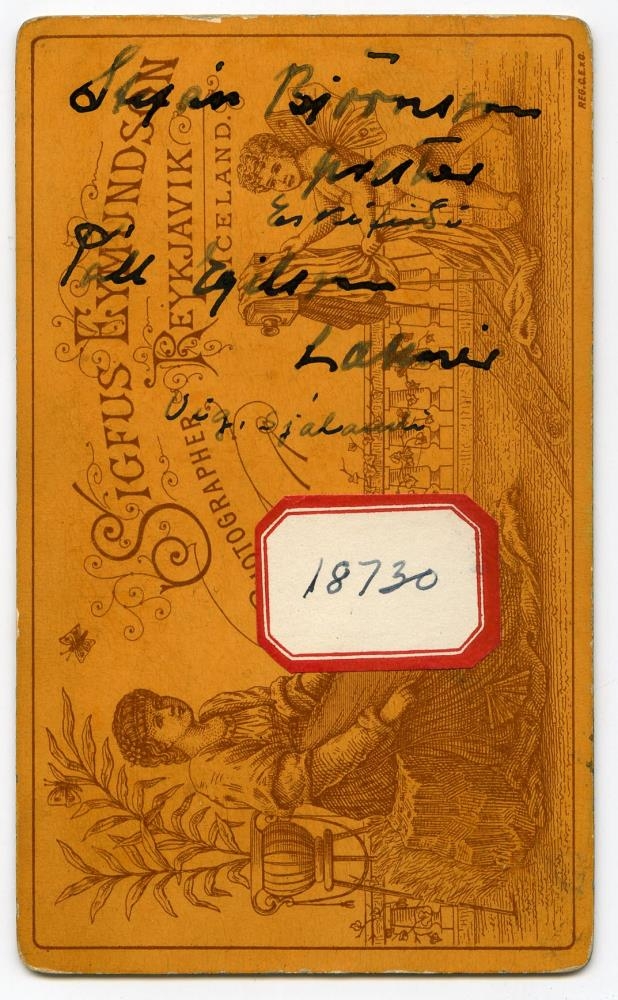 Stefán Björnsson
prestur
Eskifirði
Páll Egilsson
Læknir
Sjálandi
18730
SIGFUS EYMUNDSSON
REYKJAVIK
ICELAND.
PHOTOGRAPHER
REG. G. E. & O.